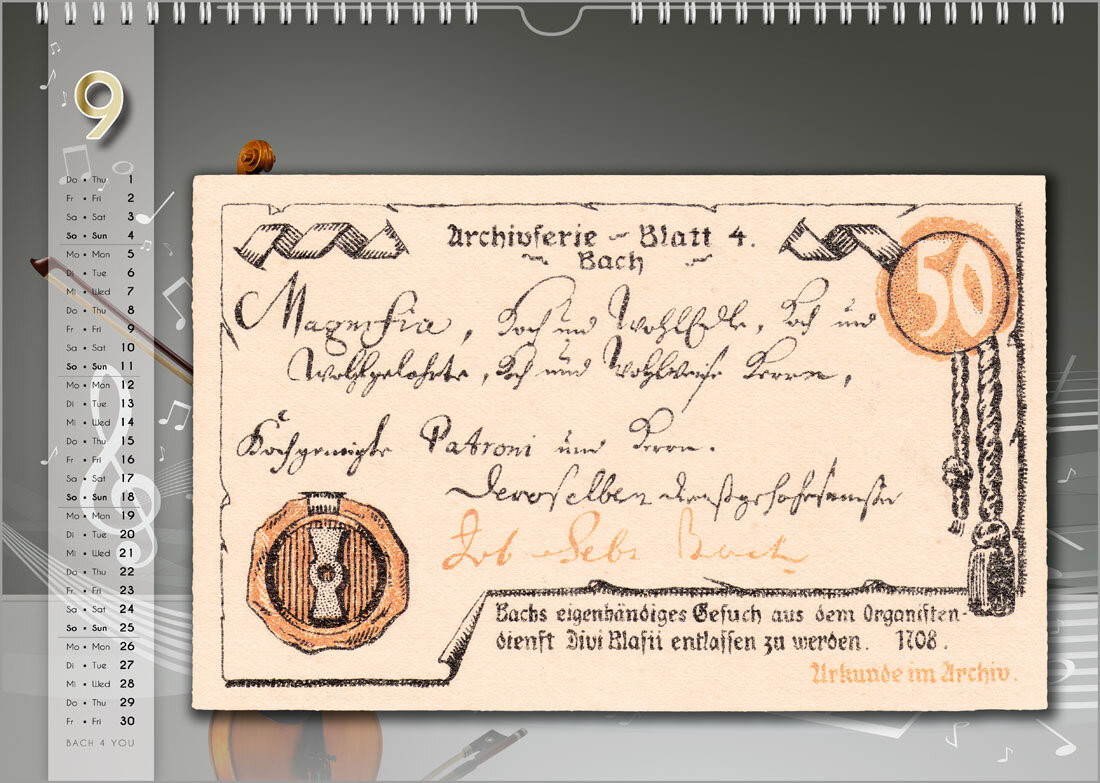 9
Do • Thu 1
Fr • Fri 2
Sa • Sat 3
So • Sun 4
Mo • Mon 5
Di • Tue 6
Mi • Wed 7
Do • Thu 8
Fr • Fri 9
Sa • Sat 10
So • Sun 11
Mo • Mon 12
Di • Tue 13
Mi • Wed 14
Do • Thu 15
Fr • Fri 16
Sa • Sat 17
So • Sun 18
Mo • Mon 19
Di • Tue 20
Mi • Wed 21
Do • Thu 22
Fr • Fri 23
Sa • Sat 24
So • Sun 25
Mo • Mon 26
Di • Tue 27
Mi • Wed 28
Do • Thu 29
Fr • Fri 30
BACH 4 YOU
Archivserie - Blatt 4.
Bach
50
Hoch und WohlEdle, Hoch und
Wohlgelahrte, Hoch und Wohlweise Herren,
Hochgeneigte Patroni und Herren.
Deroselben
Joh Seb: Bach
Bachs eigenhändiges Gesuch aus dem Organisten-
dienst Divi Blasii entlassen zu werden. 1708.
Urkunde im Archiv.